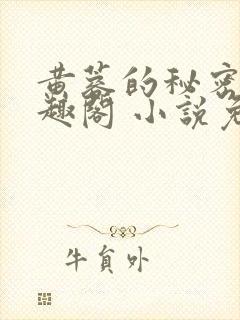 黄蓉的秘密
趣阁 小说免
牛貟外